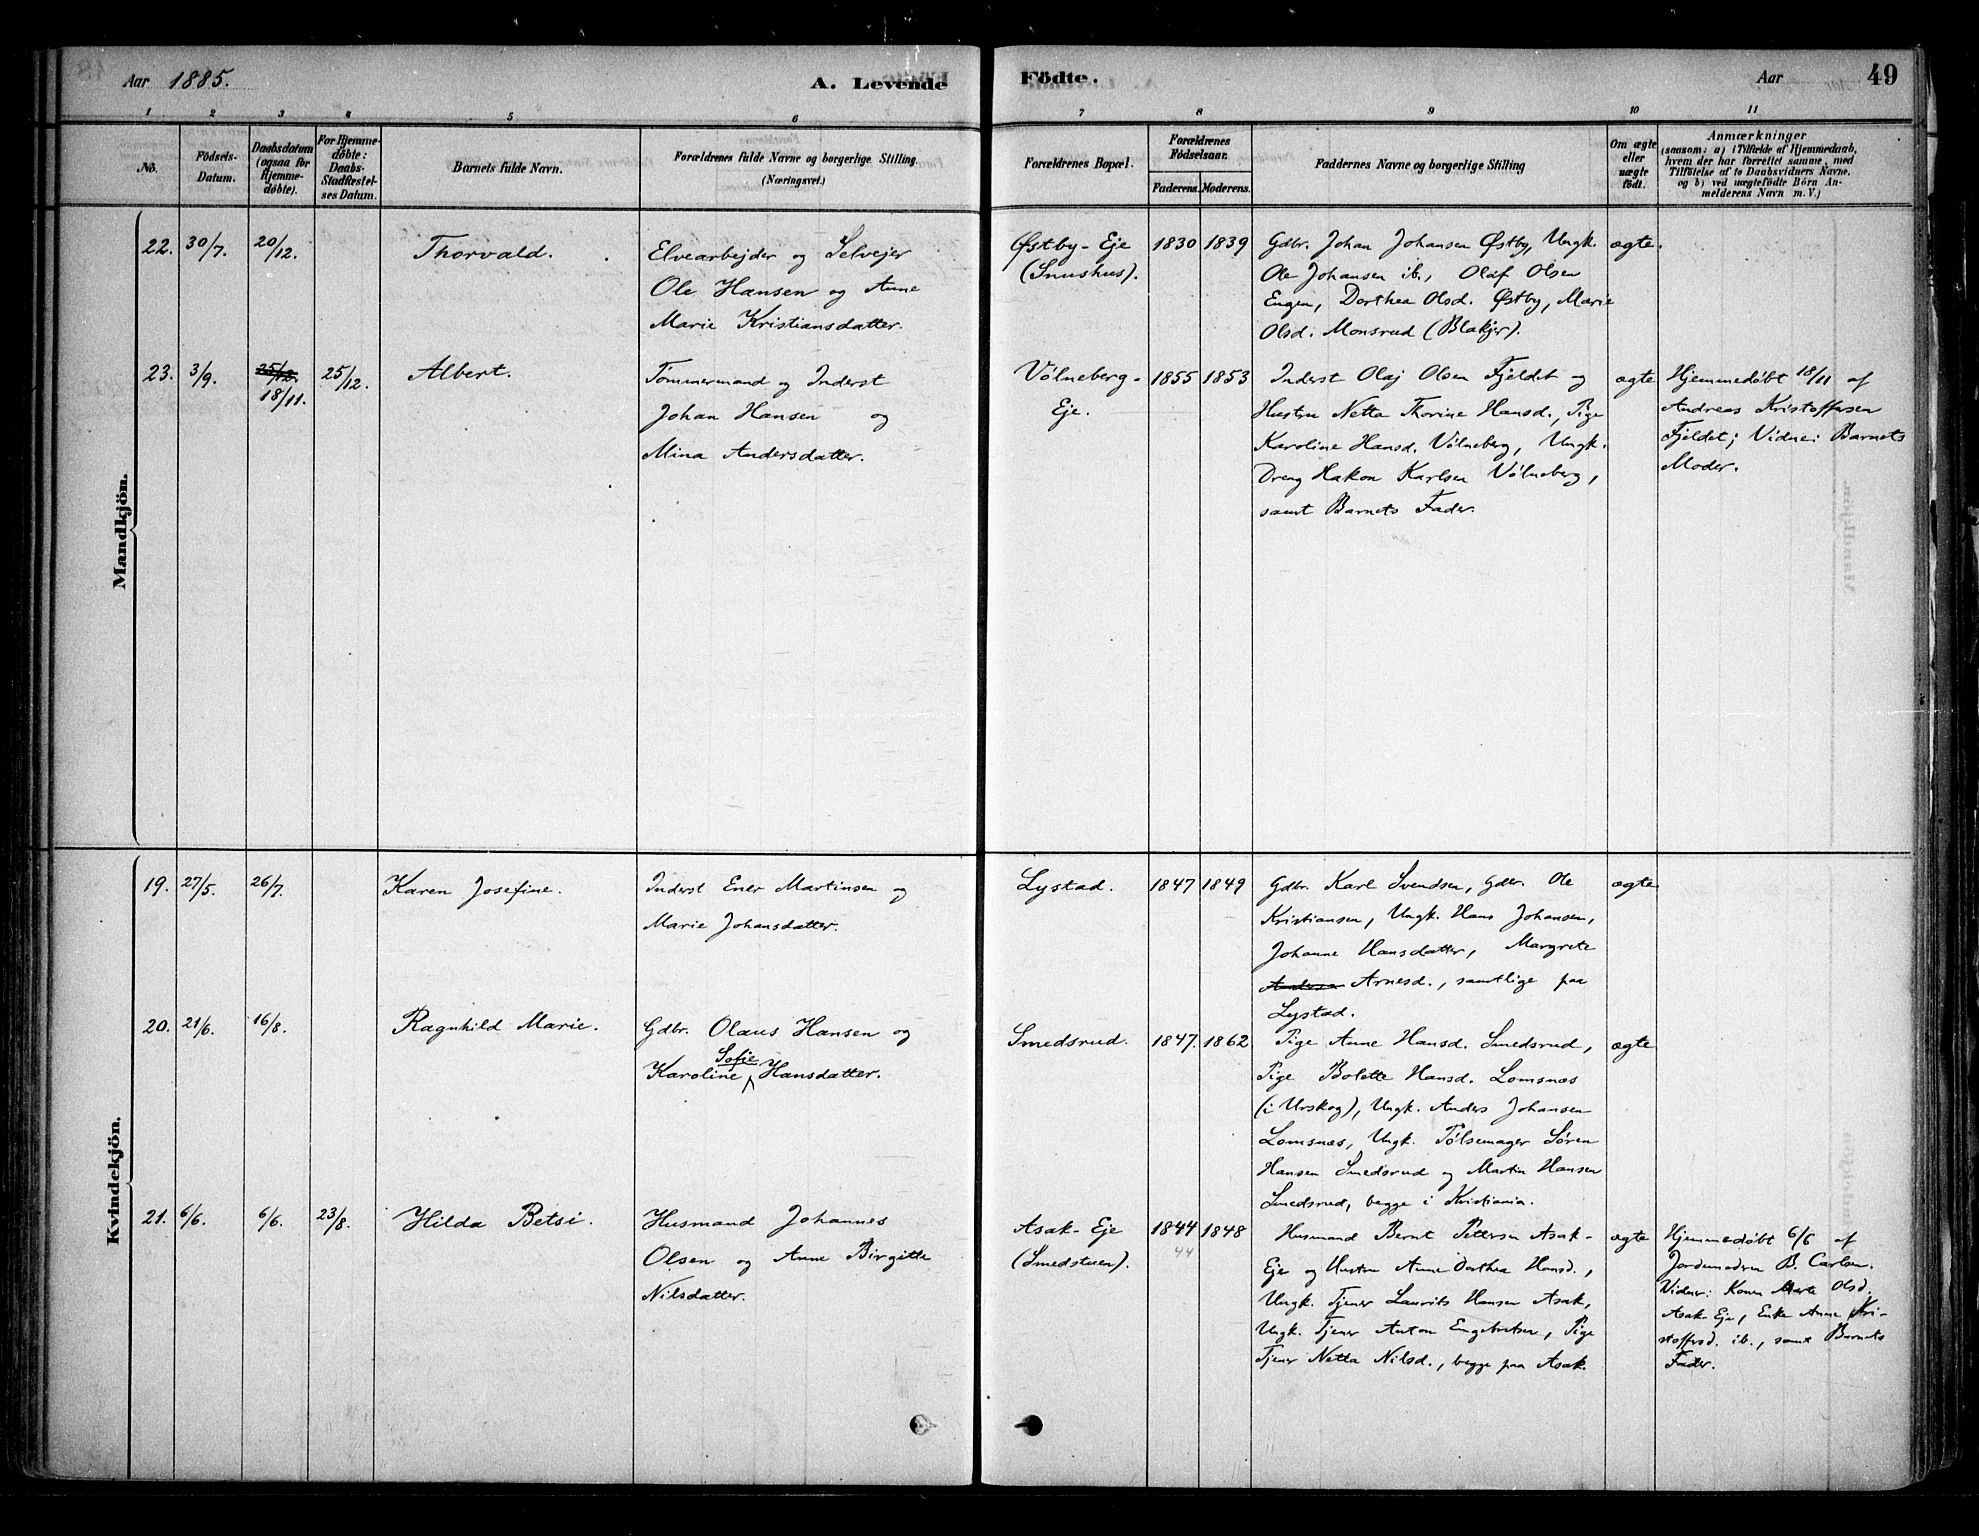 Aar 1885.
A. Levende
Födte.
Aar
49
1
2
3
4
5
6
7
8
9
10
11
No.
Födsels-
Datum.
Daabsdatum
(ogsaa for
Hjemme-
döbte).
For Hjemme-
döbte:
Daabs-
Stadfæstel-
ses Datum.
Barnets fulde Navn.
Forældrenes fulde Navne og borgerlige Stilling.
(Næringsvei.)
Forældrenes Bopæl.
Forældrenes
Födselsaar.
Faderens.
Moderens.
Faddernes Navne og borgerlige Stilling
Om ægte
eller
uægte
født.
Anmærkninger
(saasom: a) i Tilfælde af Hjemmedaab,
hvem der har forrettet samme, med
Tilföielse af to Daabsvidners Navne.
og b) ved uægtefödte Börn An-
melderens Navn m. V.)
Mandkjön.
22.
30/7.
20/12.
Thorvald.
Elvearbejder og Selvejer
Ole Hansen og Anne
Marie Kristiansdatter.
Østby-Eje
(Snushus).
1830
1839
Gdbr. Johan Johansen Østby, Ungk.
Ole Johansen ib., Olaf Olsen
Engen, Dorthea Olsd. Østby, Marie
Olsd. Monsrud (Blakjer).
ægte.
23.
3/9.
25/12.
18/11.
25/12.
Albert.
Tømmermand og Inderst
Johan Hansen og
Mina Andersdatter.
Vølneberg-
Eje.
1855
1853
Inderst Olaj Olsen Fjeldet og
Hustru Netta Thorine Hansd., Pige
Karoline Hansd. Vølneberg, Ungk.
Dreng Hakon Karlsen Vølneberg,
samt Barnets Fader.
ægte
Hjemmedøbt 18/11 af
Andreas Kristoffersen
Fjeldet; Vidne: Barnets
Moder.
Kvindekjön.
19.
27/5.
26/7.
Karen Josefine.
Inderst Ener Martinsen og
Marie Johansdatter.
Lystad.
1847
1849
Gdbr. Karl Svendsen, Gdbr. Ole
Kristiansen, Ungk. Hans Johansen,
Johanne Hansdatter, Margrete
Andersen Arnesd., samtlige paa
Lystad.
ægte
20.
21/6.
16/8.
Ragnhild Marie.
Gdbr. Olaus Hansen og
Sofie
Karoline Hansdatter.
Smedsrud.
1847.
1862
Pige Anne Hansd. Smedsrud,
Pige Bolette Hansd. Lomsnæs
(i Urskog), Ungk. Anders Johansen
Lomsnæs, Ungk. Pølsemager Søren
Hansen Smedsrud og Martin Hansen
Smedsrud, begge i Kristiania.
ægte
21.
6/6.
6/6.
23/8.
Hilda Betsi.
Husmand Johannes
Olsen og Anne Birgitte
Nilsdatter.
Asak-Eje
(Smedstuen).
1844
44
1848
Husmand Bernt Pettersen Asak-
Eje og Hustru Anne Dorthea Hansd.,
Ungk. Tjener Laurits Hansen Asak,
Ungk. Tjener Anton Engebretsen, Pige
Tjener Netta Nilsd., begge paa Asak.
ægte
Hjemmedøbt 6/6 af
Jordemoderen B. Carlsen.
Vidner: Konen Marte Olsd.
Asak-Eje, Enke Anne Kri-
stoffersd. ib., samt Barnets
Fader.